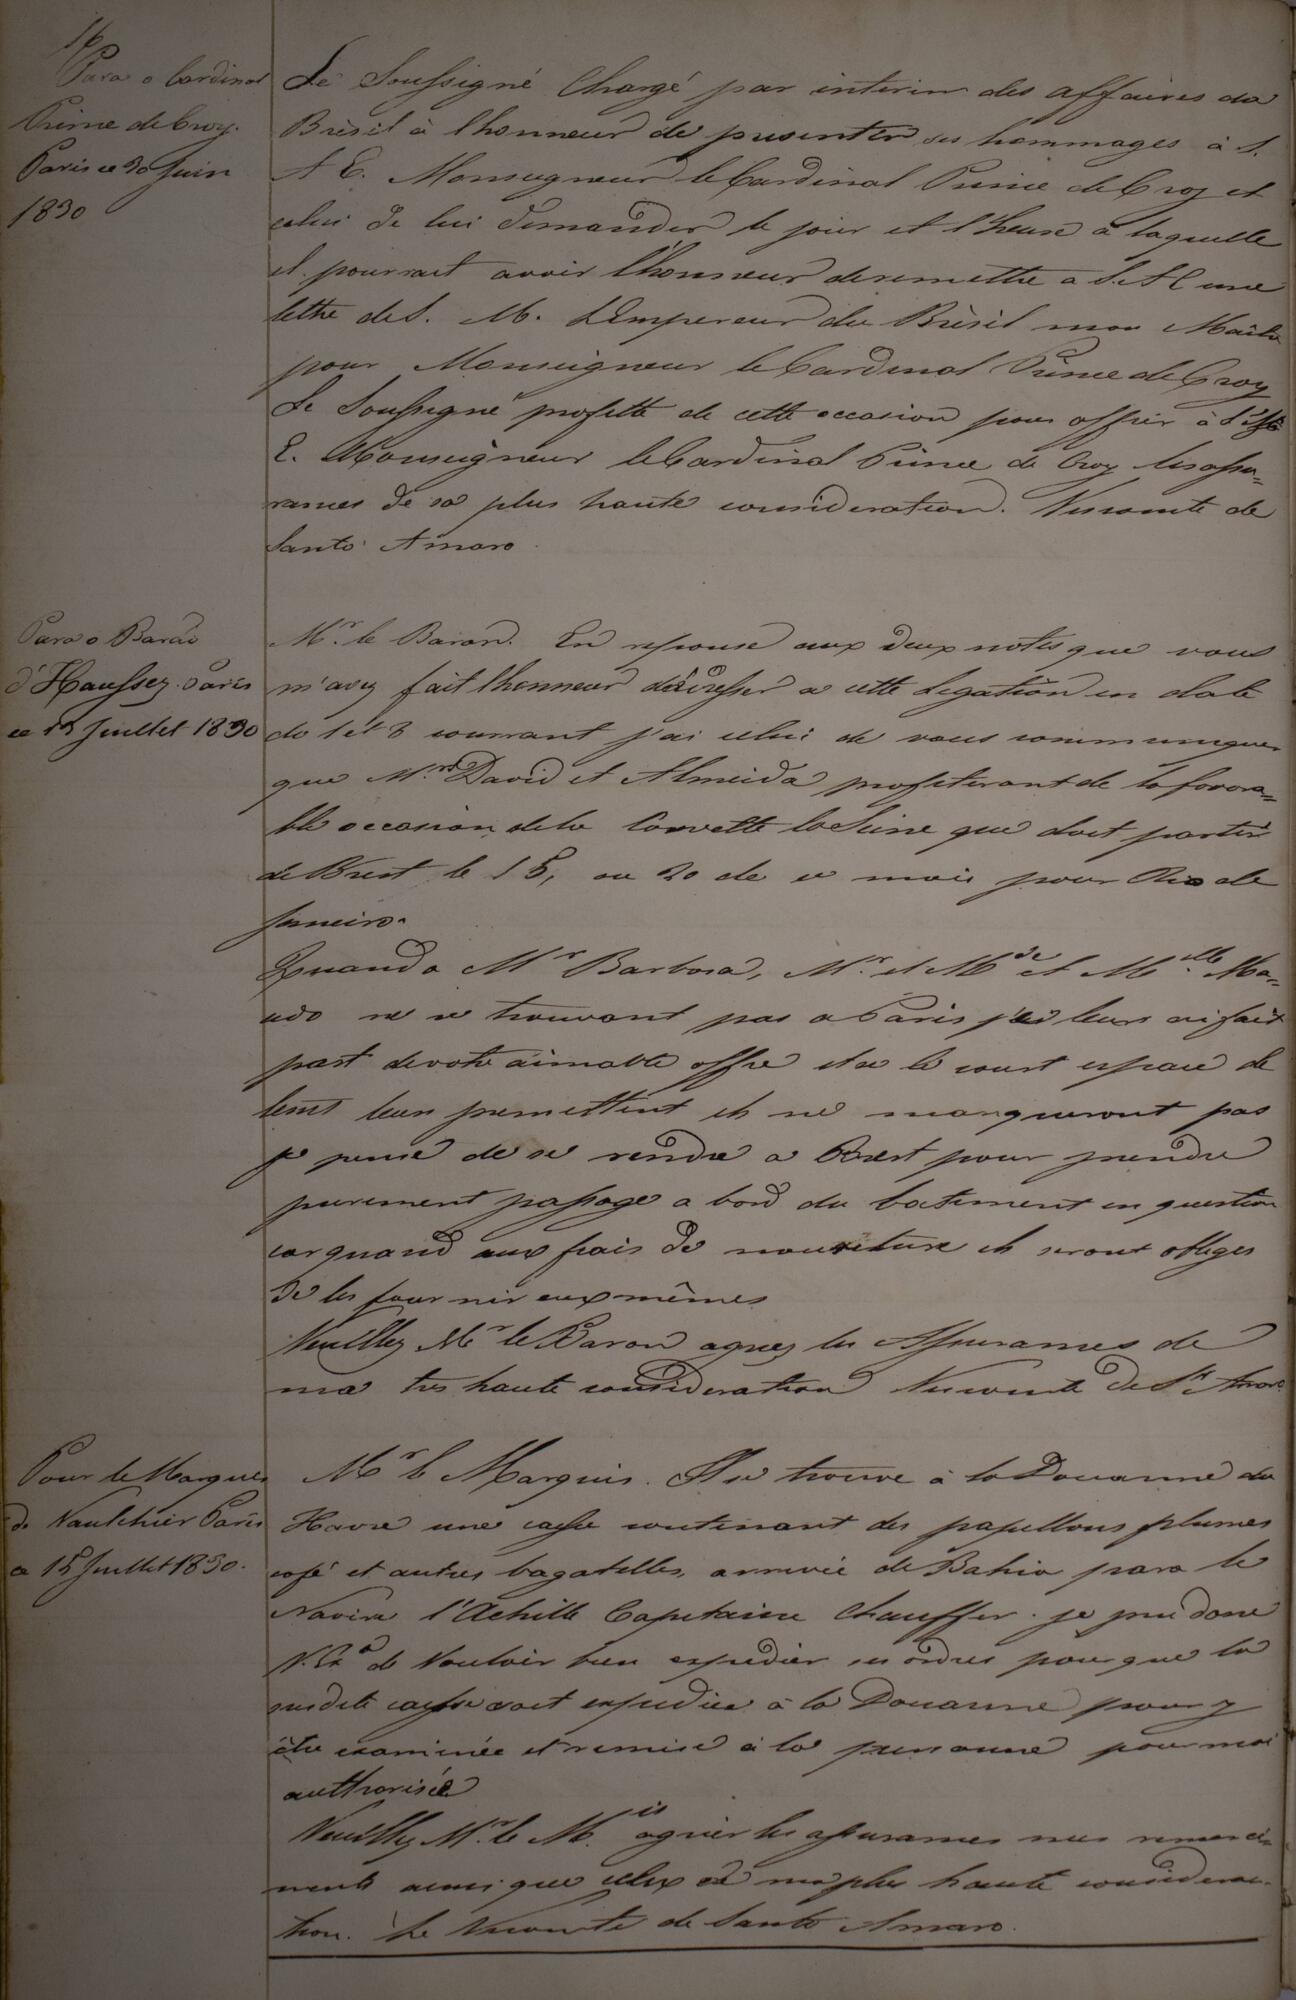 Para o Cardinal
Prince de Croy.
Paris ce 30 Juin
1830
Le Soussigné Chargé par interim des affaires du
Brèsil à l'honneur de presenter ses hommages à S.
A E. Monseigneur le Cardinal Prince de Croy et
celui de lui demander le jour et l'heure à laquelle
il pourrait avoir l'honneur de remettre a S. A E une
lettre de S. M. L'Empereur du Brèsil mon Maître
pour Monseigneur le Cardinal Prince de Croy
Le Soussigné profitte de cette occasion pour offrir à S.
E. Monseigneur le Cardinal Prince de Croy les assu-
rances de sa plus haute consideration. Viscomte de
Santo Amaro
Para o Barão
d'Haussez. Paris
ce 15 Juillet 1830
Mr. le Baron. En reponse aux deux notes que vous
m'avez fait l'honneur d'adresser a cette Legation en date
do 1 et 8 courrant j'ai celui de vous communiquer
que Mrs. David et Almeida profiterant de la favora-
ble occasion de la Corvette la Seine que doit partir
de Brest le 15, ou 20 de ce mois pour Rio de
Janeiro.
Quand a Mr Barbosa, Mr. et Mde et Mlle Ma-
cedo ne se trouvant pas a Paris leurs ai fait
part de votre aimable offre et se le court espace de
tems leur premettent ils ne manqueront pas
je pense de se rendre a Brest pour prendre
purement passage a bord du batiment en question
car quand aux frais de nouriture ils seront obliges
de les fournir eux mêmes
Veuillez Mr le Baron agrez les Assurances de
ma tres haute consideration Viscomte de Sto. Amaro
Pour le Marques
de Vaulchier Paris
ce 15 Juillet 1830.
Mr le Marquis. Il se trouve à la Douanne du
Havre une caisse contenant des papillons plumes
café et autres bagatelles, arrivée de Bahia para le
Navire l'Achille Capitaine Chauffer. je prie donc
V. Exa de Vouloir bien expedier ses ordres pour que la
susdite caisse soit expediée à la Douanne pour y
être examinée et remise à la personne pour moi
authorisée
Veuillez Mr. le Mis. agréer les assurances mes remerci-
ments ainsi que celux de ma plus haute considera-
tion. Le Vicomte de Santo Amaro.